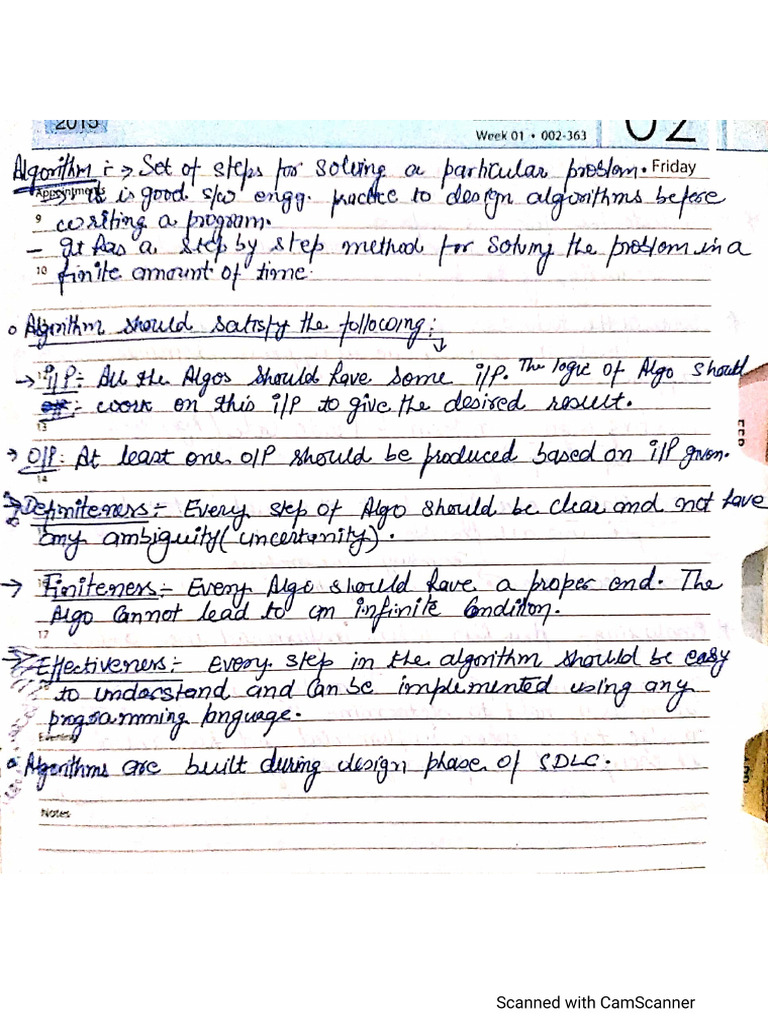 2015
Week 01 • 002-363
02
Algorithm :-> Set of steps for solving a particular problem. Friday
Appointments
-> It is good s/w engg. practice to design algorithms before
9 writing a program.
- It has a step by step method for solving the problem in a
10 finite amount of time.
o Algorithm should satisfy the following:
-> i/p:- All the Algos should have some i/p. The logic of Algo should
:- work on this i/p to give the desired result.
13
-> O/P: At least one O/P should be produced based on i/p given.
14
-> Definiteness:- Every step of Algo should be clear and not have
any ambiguity (uncertunity).
-> Finiteness:- Every Algo should have a proper end. The
Algo cannot lead to an infinite Condition.
17
-> Effectiveness:- Every step in the algorithm should be easy
to understand and can be implemented using any
programming language.
Evening
o Algorithms are built during design phase of SDLC.
Notes
Scanned with CamScanner